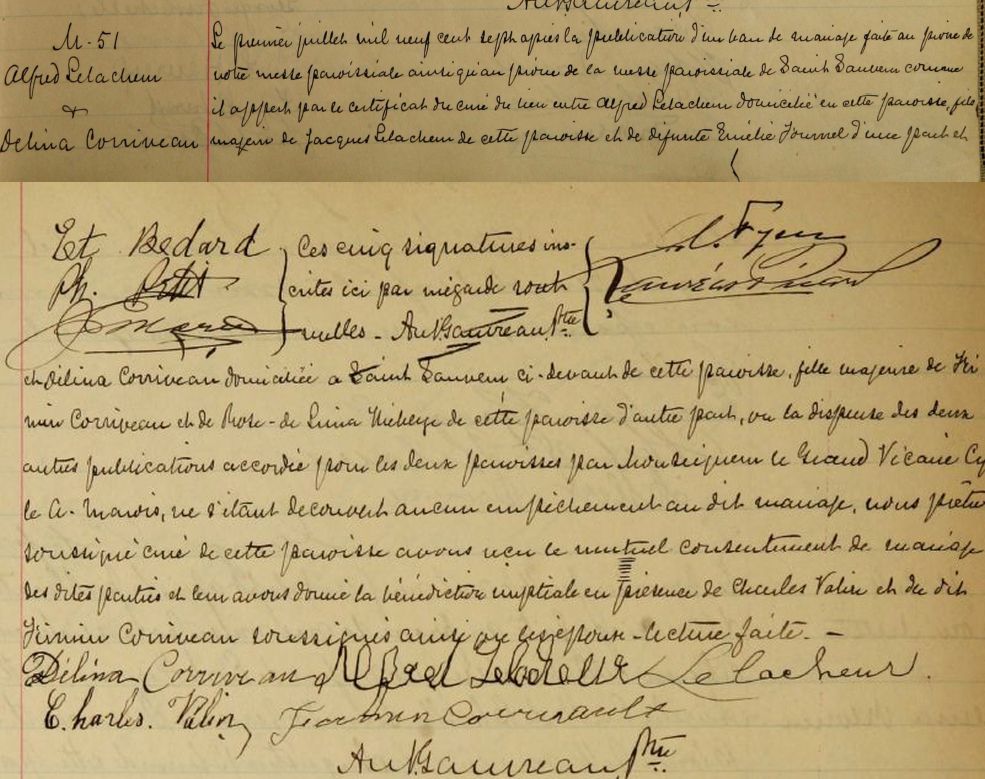 M-51
Alfred Lelacheur
&
Délina Corriveau
Le premier juillet mil neuf cent sept après la publication d'un ban de mariage faite au prône de
notre messe paroissiale ainsi qu'au prône de la messe paroissiale de Saint Sauveur comme
il appert par le certificat du curé du lieu entre Alfred Lelacheur domicilié en cette paroisse, fils
majeur de Jacques Lelacheur de cette paroisse et de défunte Emélie Fournel d'une part et
Et Bedard
Ph. Petit
Ces cinq signatures ins-
crites ici par mégarde sont
nulles - Aut. Gauvreau Ptre
et Délina Corriveau domiciliée à Saint Sauveur ci-devant de cette paroisse, fille majeure de Fir
min Corriveau et de Rose-de Lima Thiberge de cette paroisse d'autre part, vu la dispense des deux
autres publications accordée pour les deux paroisses par Monseigneur le Grand Vicaire Cy
le A. Marois, ne s'étant découvert aucun empêchement au dit mariage, nous prêtre
soussigné curé de cette paroisse avons reçu le mutuel consentement de mariage
des dites parties et leur avons donné la bénédiction nuptiale en présence de Charles Valin et du dit
Firmin Corriveau soussignés ainsi que les époux - lecture faite. -
Délina Corriveau Alfred Lelacheur
C.harles. Valin Firmin
Aut. Gauvreau Ptre